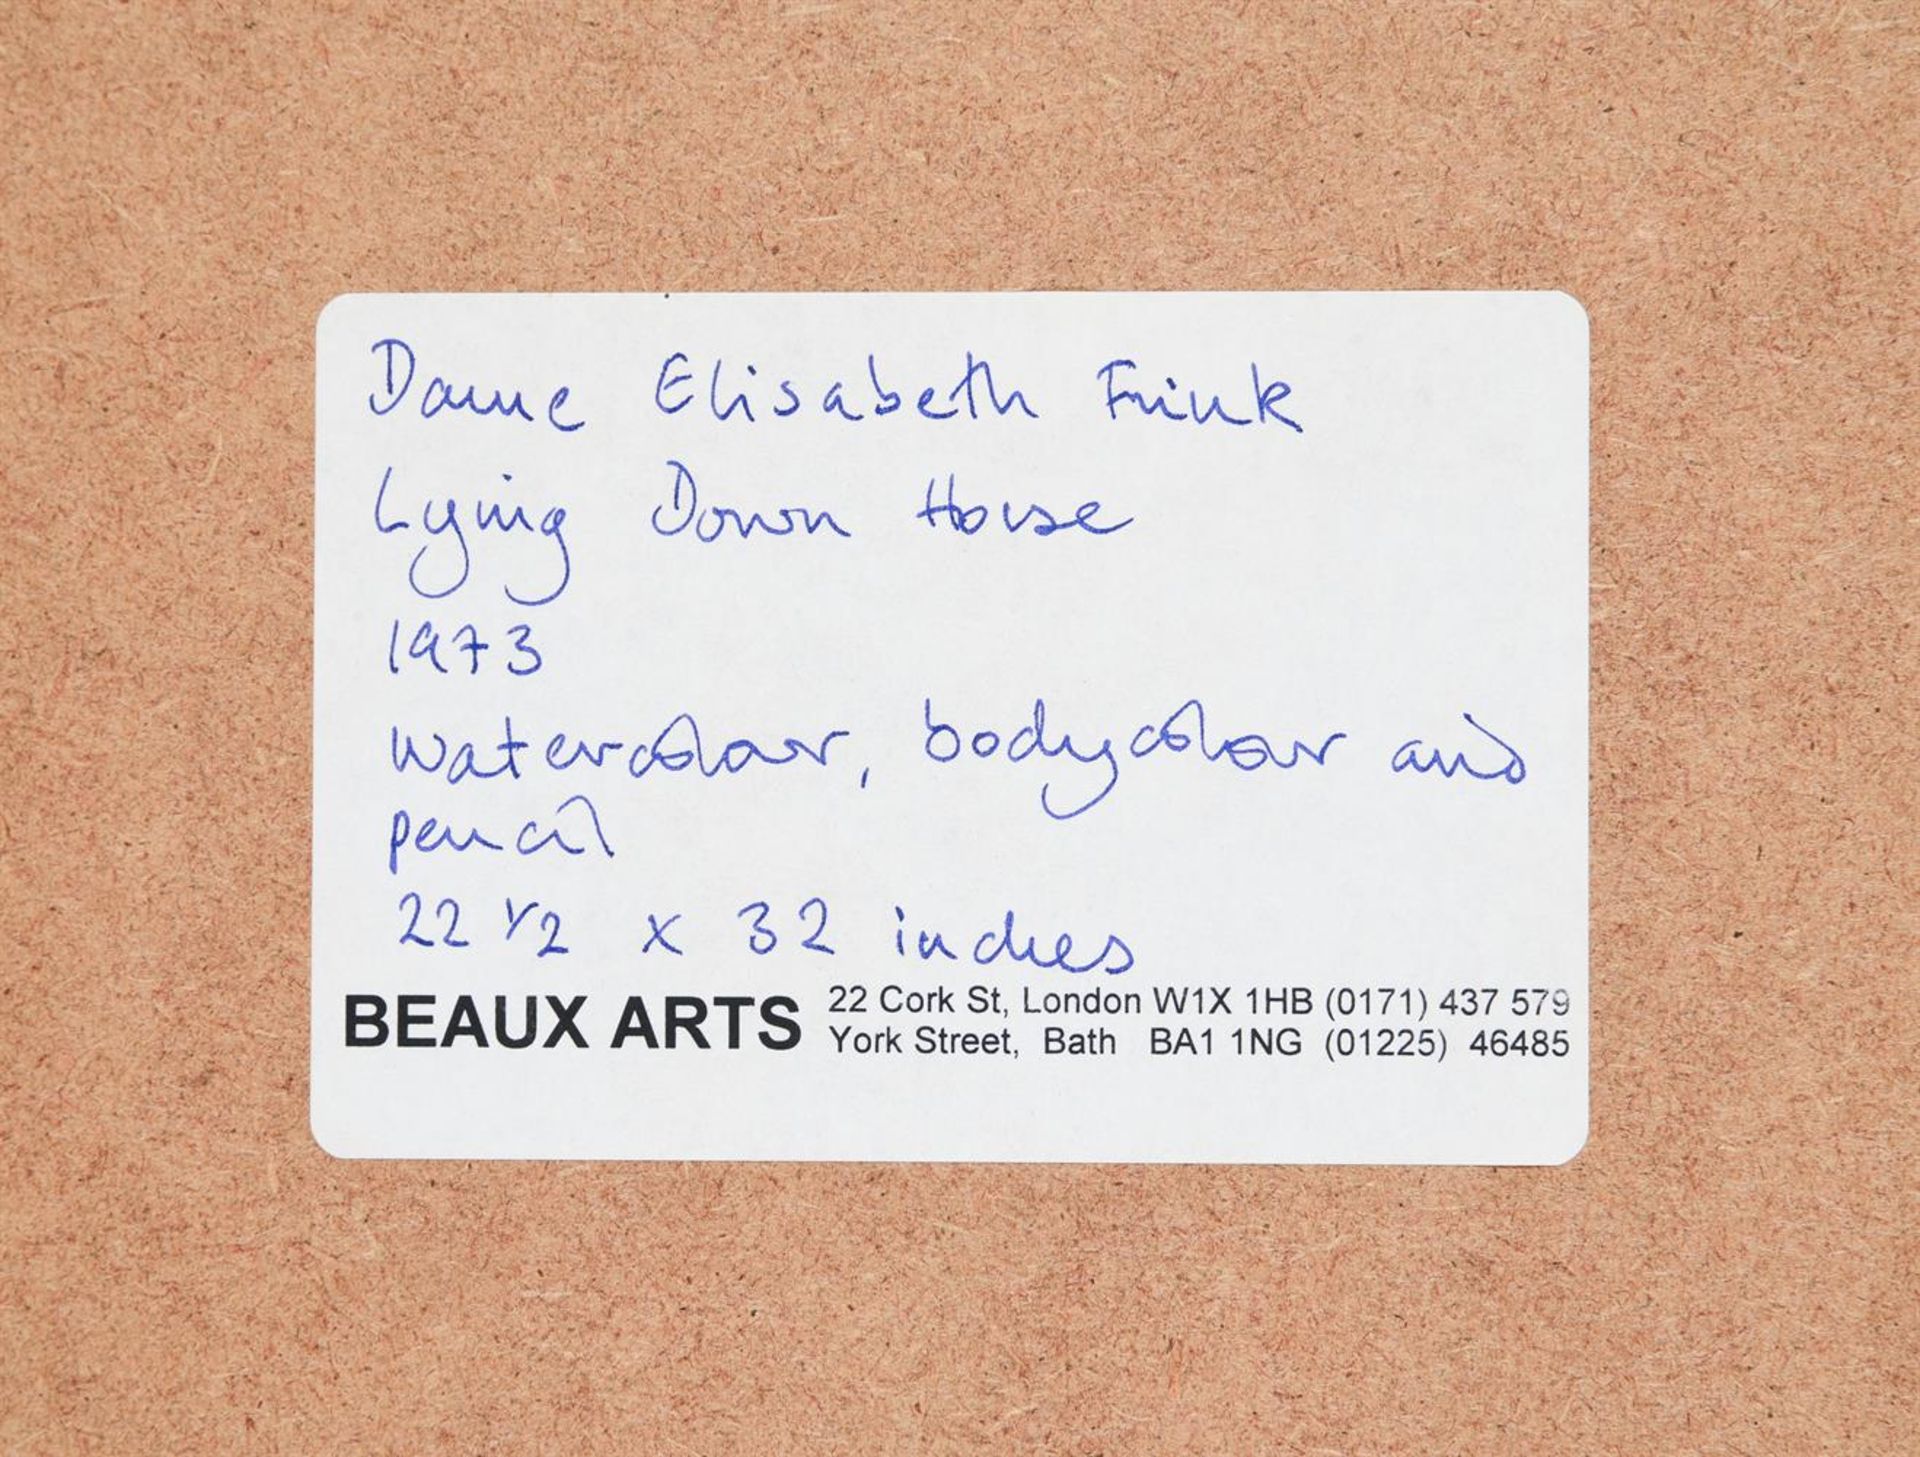 Dame Elisabeth Frink
Lying Down Horse
1973
watercolour, bodycolour and
pencil
22 1/2 x 32 inches
BEAUX ARTS
22 Cork St, London W1X 1HB (0171) 437 579
York Street, Bath BA1 1NG (01225) 46485